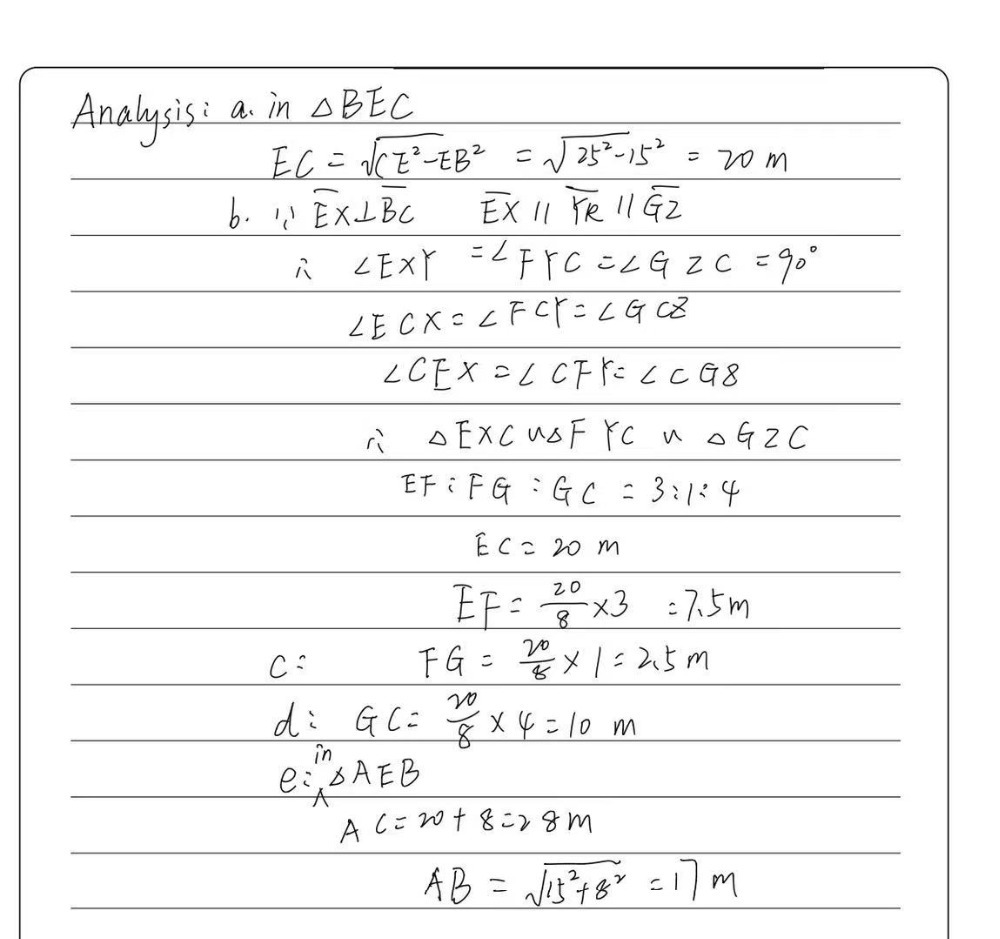 Analysis: a. in △BEC
EC = √(CE²-EB²) = √(25²-15²) = 20 m
b. ∵ E̅X̅⊥B̅C̅ E̅X̅ // Y̅R̅ // G̅Z̅
∴ ∠EXY = ∠FYC = ∠GZC = 90°
∠ECX = ∠FCY = ∠GCZ
∠CEX = ∠CFY = ∠CG8
∴ △EXC ∽ △FYC ∽ △GZC
EF : FG : GC = 3:1:4
EC = 20 m
EF = 20/8 ×3 = 7.5m
c: FG = 20/8 × 1 = 2.5 m
d: GC = 20/8 × 4 = 10 m
e: in △AEB
AC = 20 + 8 = 28 m
AB = √(15²+8²) = 17 m